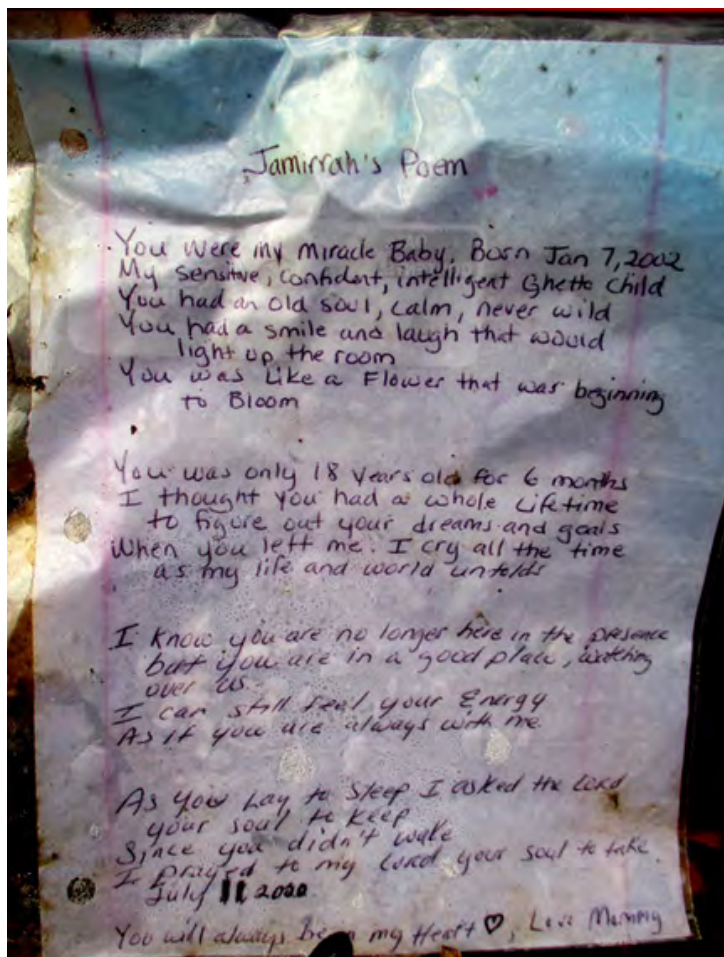 Jamirrah's Poem
You were my miracle Baby. Born Jan 7, 2002
My sensitive, confident, intelligent Ghetto child
You had an old soul, calm, never wild
You had a smile and laugh that would
light up the room
You was Like a Flower that was beginning
to Bloom
You was only 18 years old for 6 months
I thought you had a whole Lifetime
to figure out your dreams and goals
When you left me. I cry all the time
as my life and world unfolds
I know you are no longer here in the presence
but you are in a good place, watching
over us.
I can still feel your Energy
As if you are always with me.
As you Lay to sleep I asked the Lord
your soul to keep
Since you didn't wake
I prayed to my Lord your soul to take.
July 11 2020
You will always be in my Heart ♡, Love Mommy